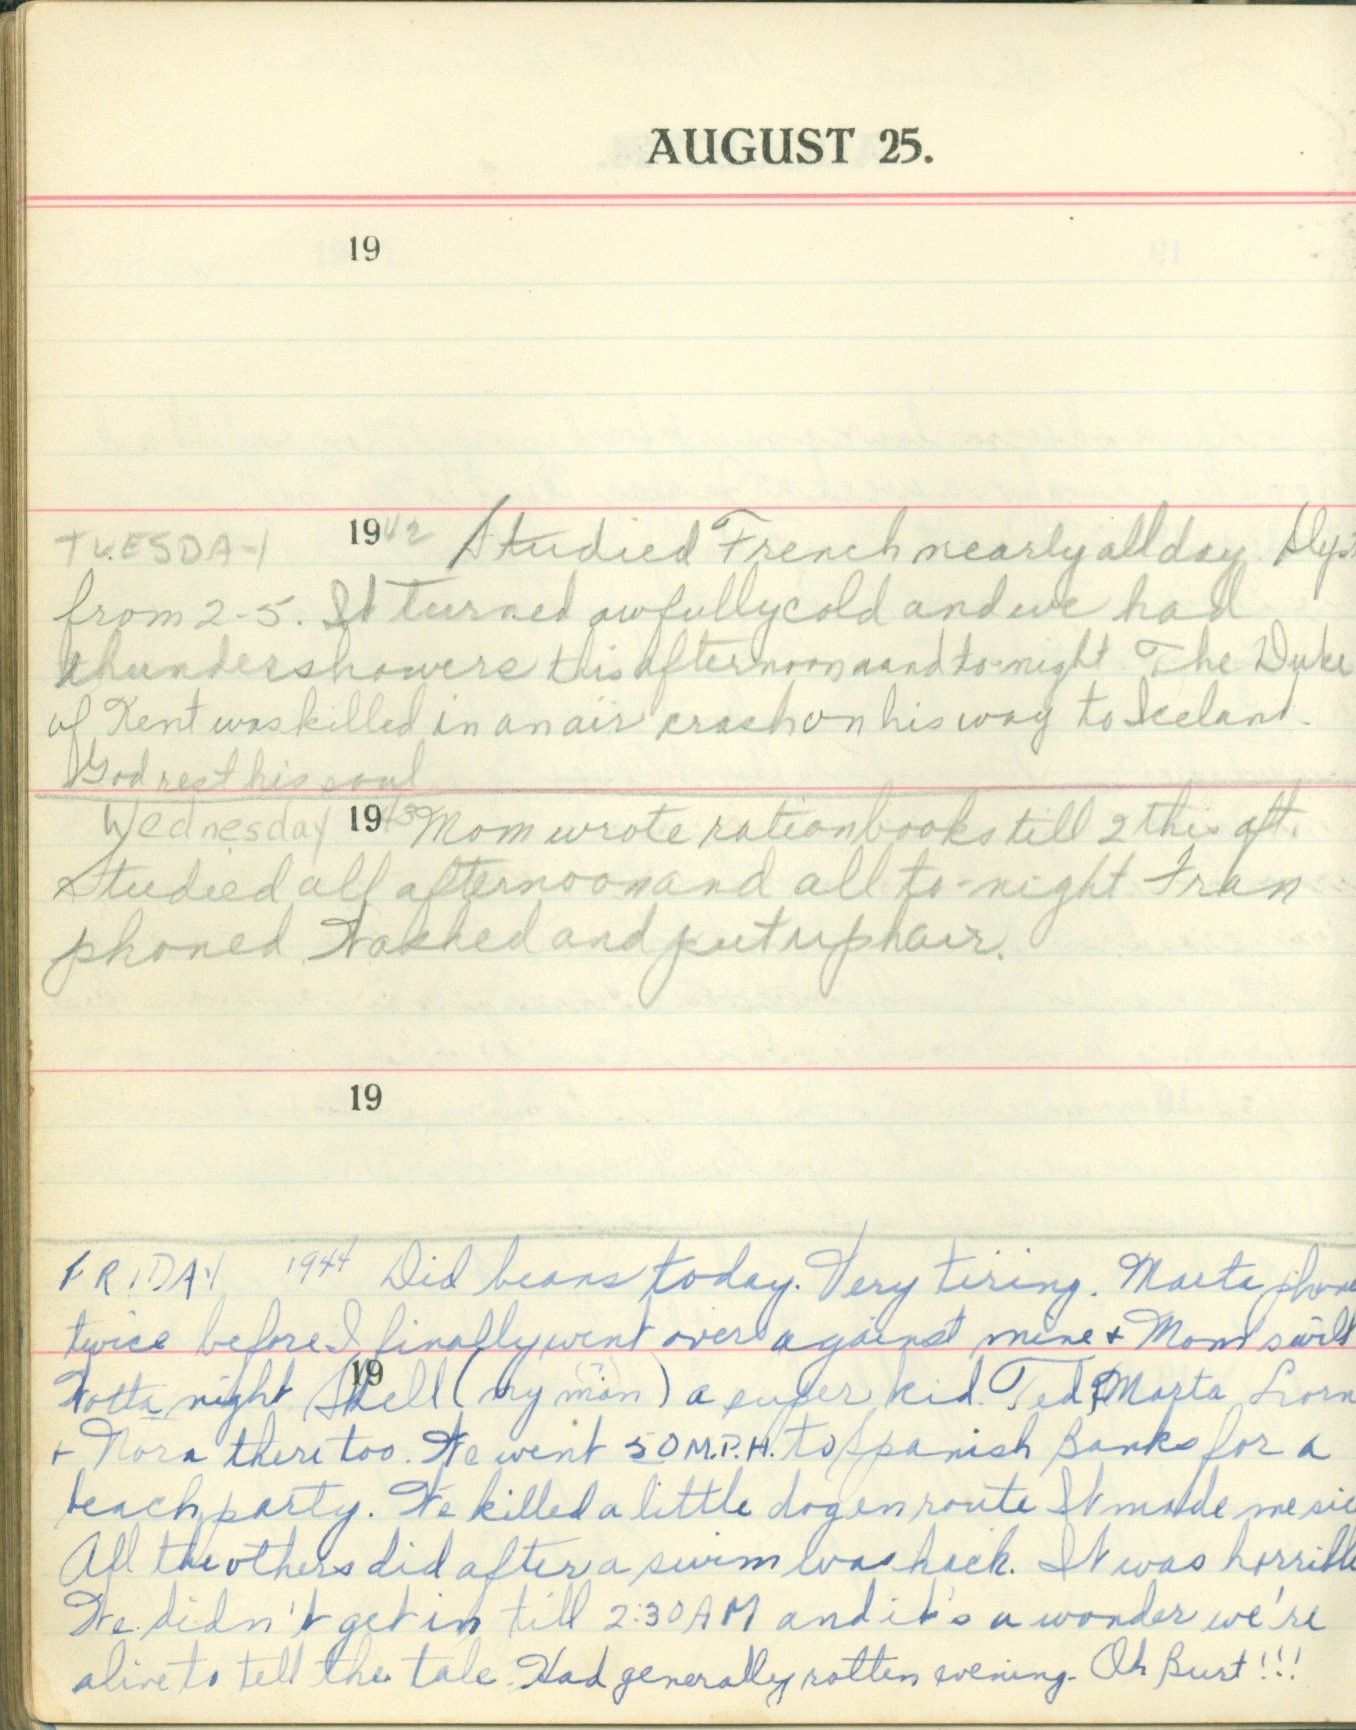 AUGUST 25.
19
TUESDAY 1942 Studied French nearly all day. Slept
from 2-5. It turned awfully cold and we had
thundershowers this afternoon aand to-night The Duke
of Kent was killed in an air crash on his way to Iceland.
God rest his soul
Wednesday 1943 Mom wrote ration books till 2 this aft.
Studied all afternoon and all to-night Fran
phoned Washed and put up hair.
19
FRIDAY 1944 Did beans today. Very tiring. Marta phone
twice before I finally went over against mine + Mom's will
19
Wotta night Shell (my man) a super kid. Ted, Marta Lorn
+ Nora there too. We went 50 M.P.H. to Spanish Banks for a
beach party. We killed a little dog en route It made me sic
All the others did after a swim was hack. It was horrible
We didn't get in till 2:30 AM and it's a wonder we're
alive to tell the tale. Had generally rotten evening. Oh Burt!!!